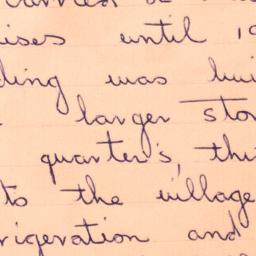 ises until 19
ding was bui
larger sto
quarter's, thi
to the village
rigeration and